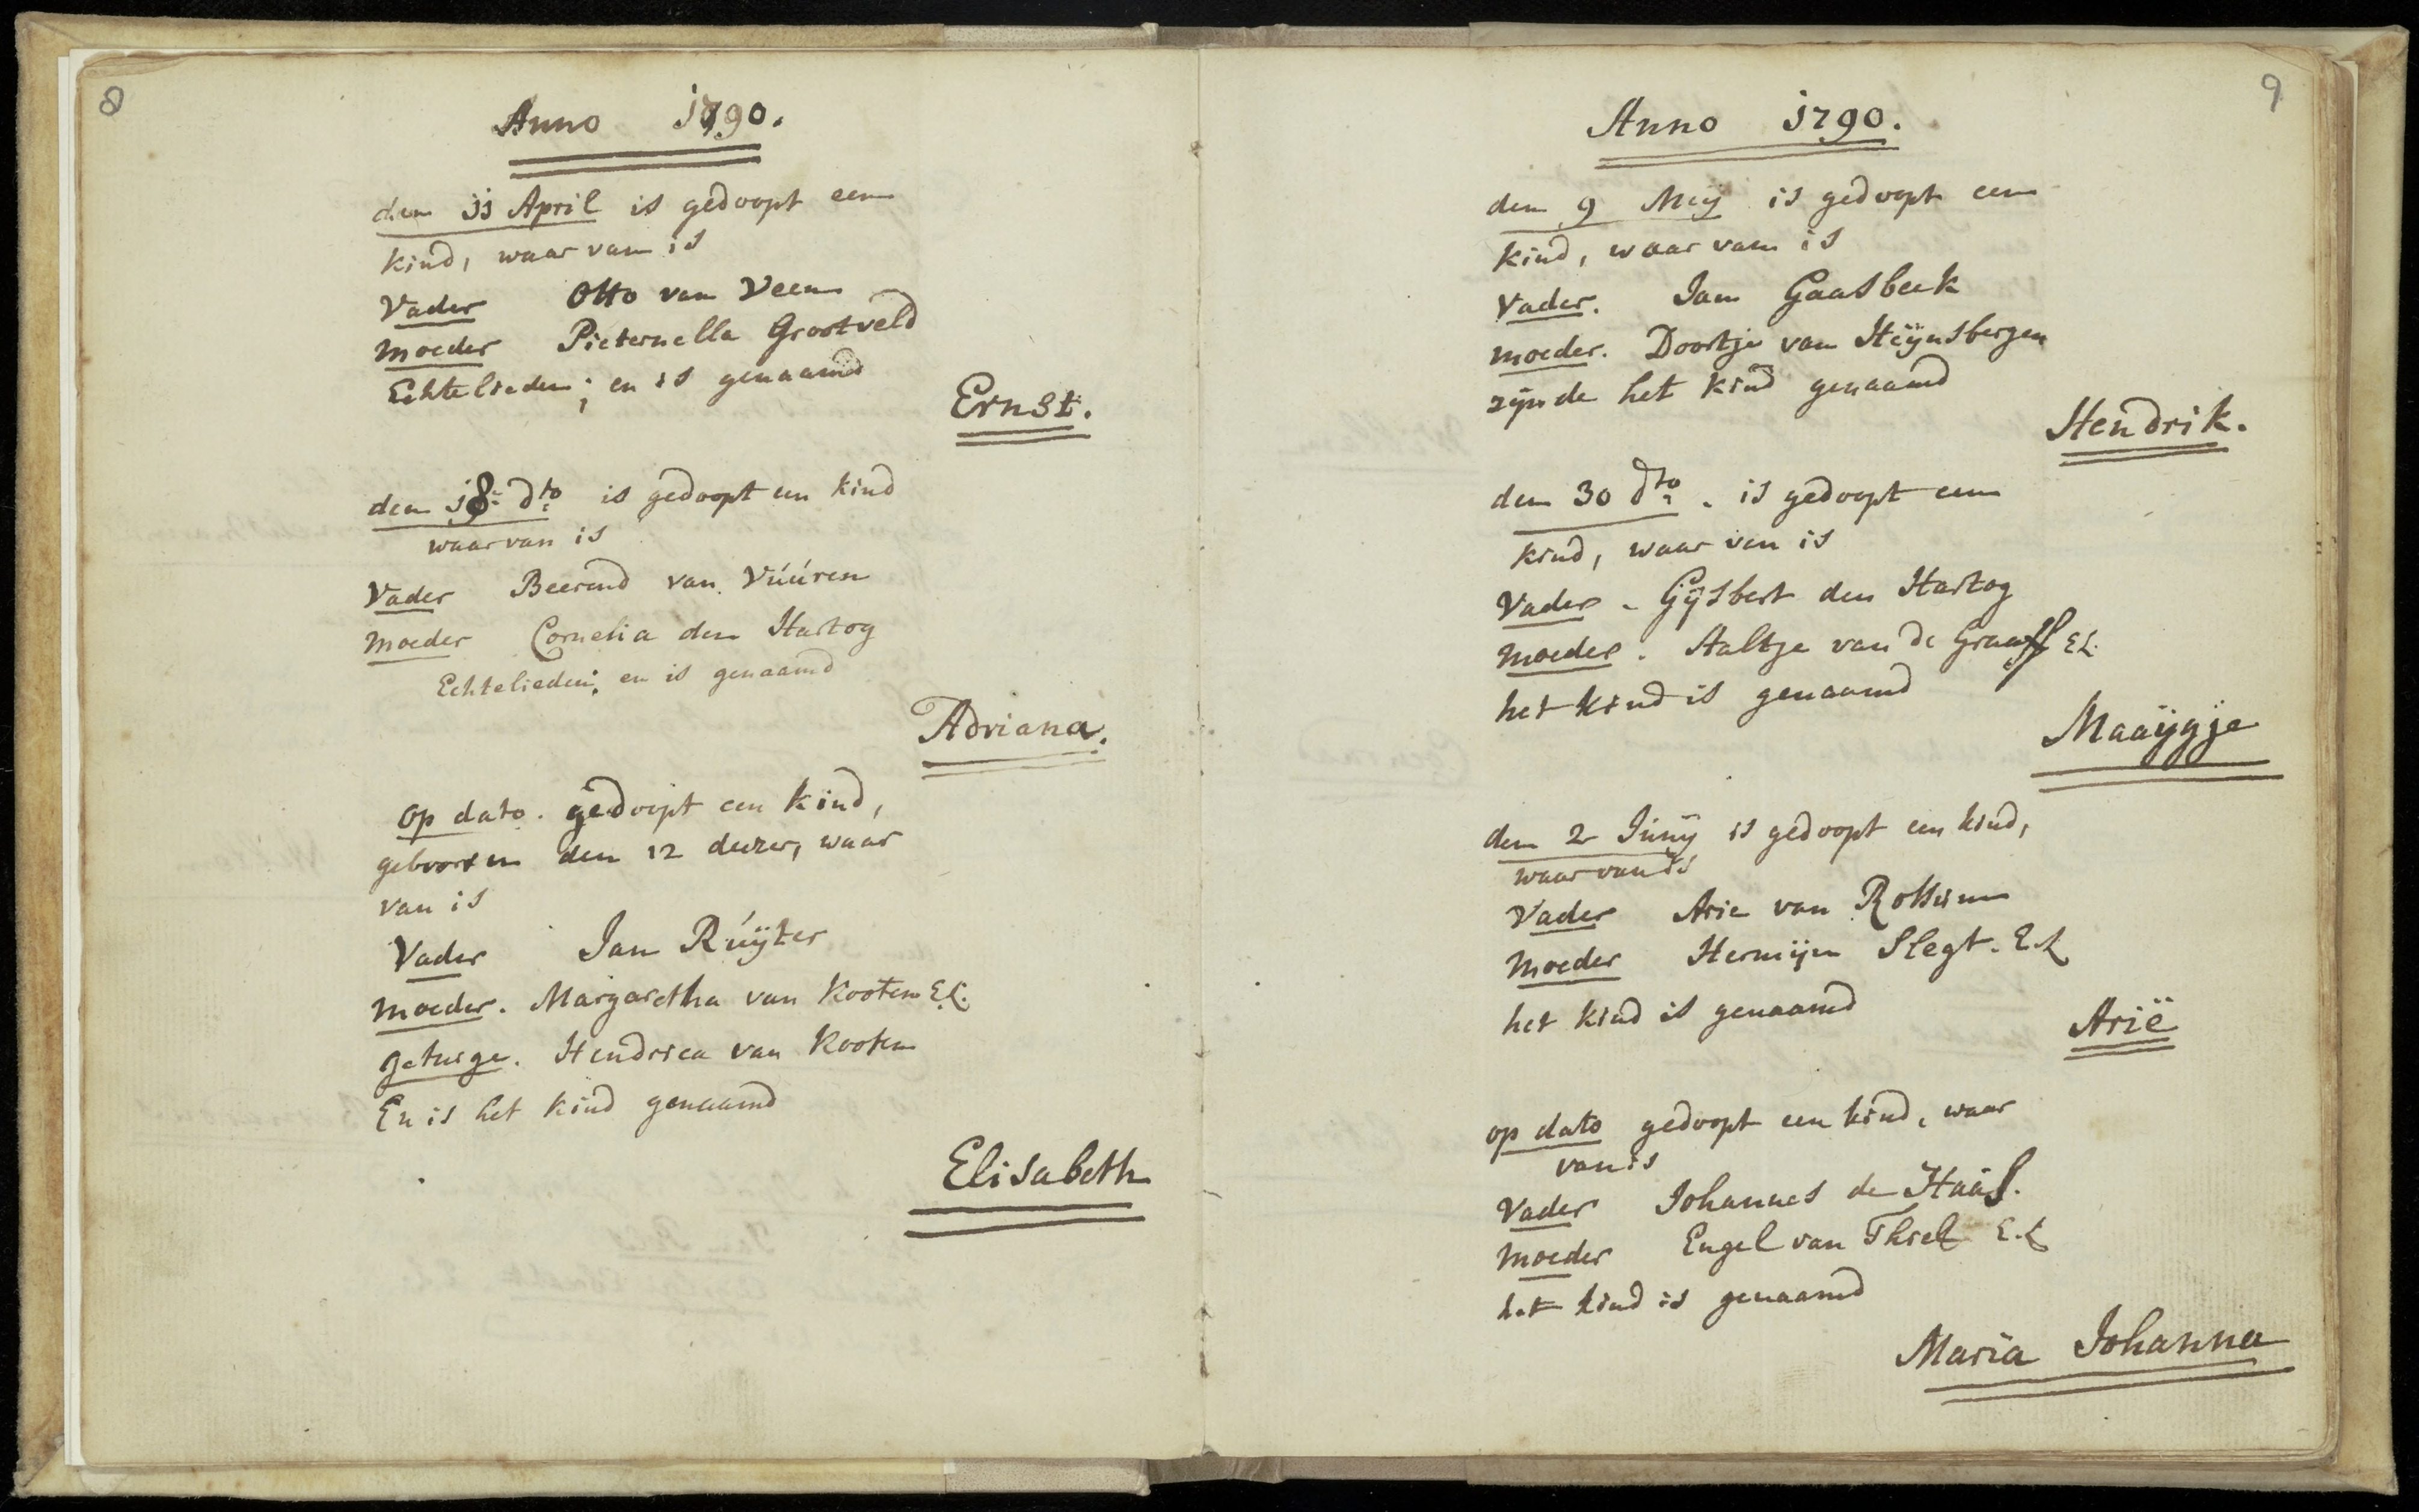 8
Anno 1790.
den 11 April is gedoopt een
kind, waar van is
Vader Otto van Veen
moeder Pieternella Grootveld
Echtelieden; en is genaamd
Ernst.
den 18 dto is gedoopt een kind
waarvan is
Vader Beerend van Vúúren
moeder Cornelia den Hartog
Echtelieden; en is genaamd
Adriana.
op dato. gedoopt een kind,
gebooren den 12 deezer, waar
van is
Vader Jan Rúÿter
moeder. Margaretha van Kooten E.L.
getuige. Hendrica van Kooten
En is het kind genaamd
Elisabeth
9
Anno 1790.
den 9 Meÿ is gedoopt een
kind, waar van is
Vader. Jan Gaasbeek
moeder. Doortje van Heÿnsbergen
zijnde het kind genaamd
Hendrik.
den 30 dto. is gedoopt een
kind, waar van is
Vader - Gÿsbert den Hartog
moeder. Aaltje van de Graaff EL.
het kind is genaamd
Maaÿgje
den 2 Junÿ is gedoopt een kind,
waar van is
Vader Arie van Rossum
moeder Hermijn Slegt. E.L
het kind is genaamd
Arië
op dato gedoopt een kind, waar
van is
Vader Johannes de Haas.
moeder Engel van Thiel E.L
het kind is genaamd
Maria Johanna